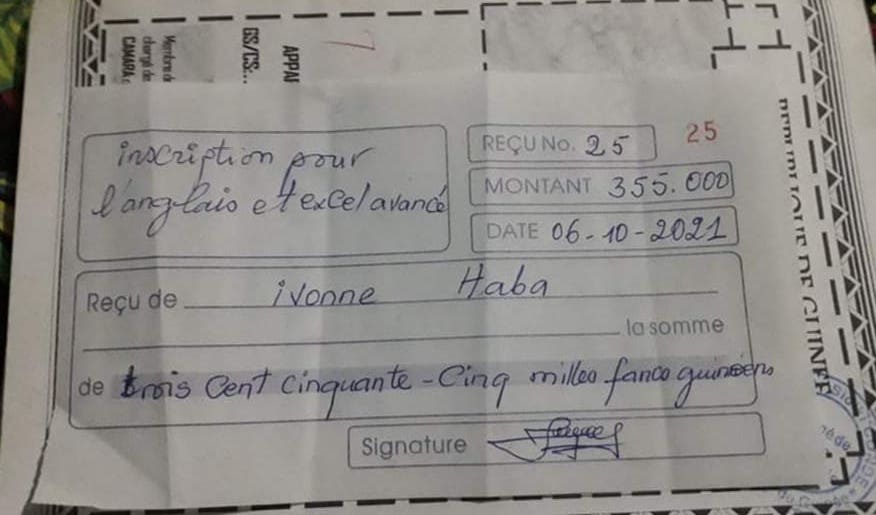 Membre d
chargé de
CAMARA
GS/CS:..
APPAI
RÉPUBLIQUE DE GUINÉE
inscription pour
l'anglais et excel avancé
REÇU No. 25
25
MONTANT 355.000
DATE 06-10-2021
Reçu de ivonne Haba
la somme
de trois cent cinquante-Cinq milles fancs guinéens
Signature